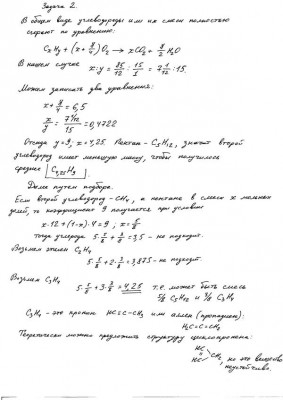 Задача 2.
В общем виде углеводороды или их смеси полностью
сгорают по уравнению:
CxHy + (x + y/4) O2 → xCO2 + y/2 H2O
В нашем случае x:y = 85/12 : 15/1 = 7 1/12 : 15.
Можем записать два уравнения:
x + y/4 = 6,5
x/y = 7 1/12 / 15 = 0,4722
Отсюда y = 9; x = 4,25. Пентан - C5H12, значит второй
углеводород имеет меньшую массу, чтобы получилось
среднее C4,25H9.
Далее путем подбора.
Если второй углеводород - CH4, а пентана в смеси x мольных
долей, то коэффициент 9 получается при условии
x·12 + (1-x)·4 = 9; x = 5/8
тогда углерода 5·5/8 + 3/8 = 3,5 - не подходит.
Возьмем этилен C2H4
5·5/8 + 2·3/8 = 3,875 - не подходит.
Возьмем C3H4
5·5/8 + 3·3/8 = 4,25 т.е. может быть смесь
5/8 C5H12 и 3/8 C3H4
C3H4 - это пропин HC≡C-CH3 или аллен (пропадиен):
H2C=C=CH2
Теоретически можно предложить структуру циклопропена:
HC
HC CH2, но это вещество
неустойчиво.